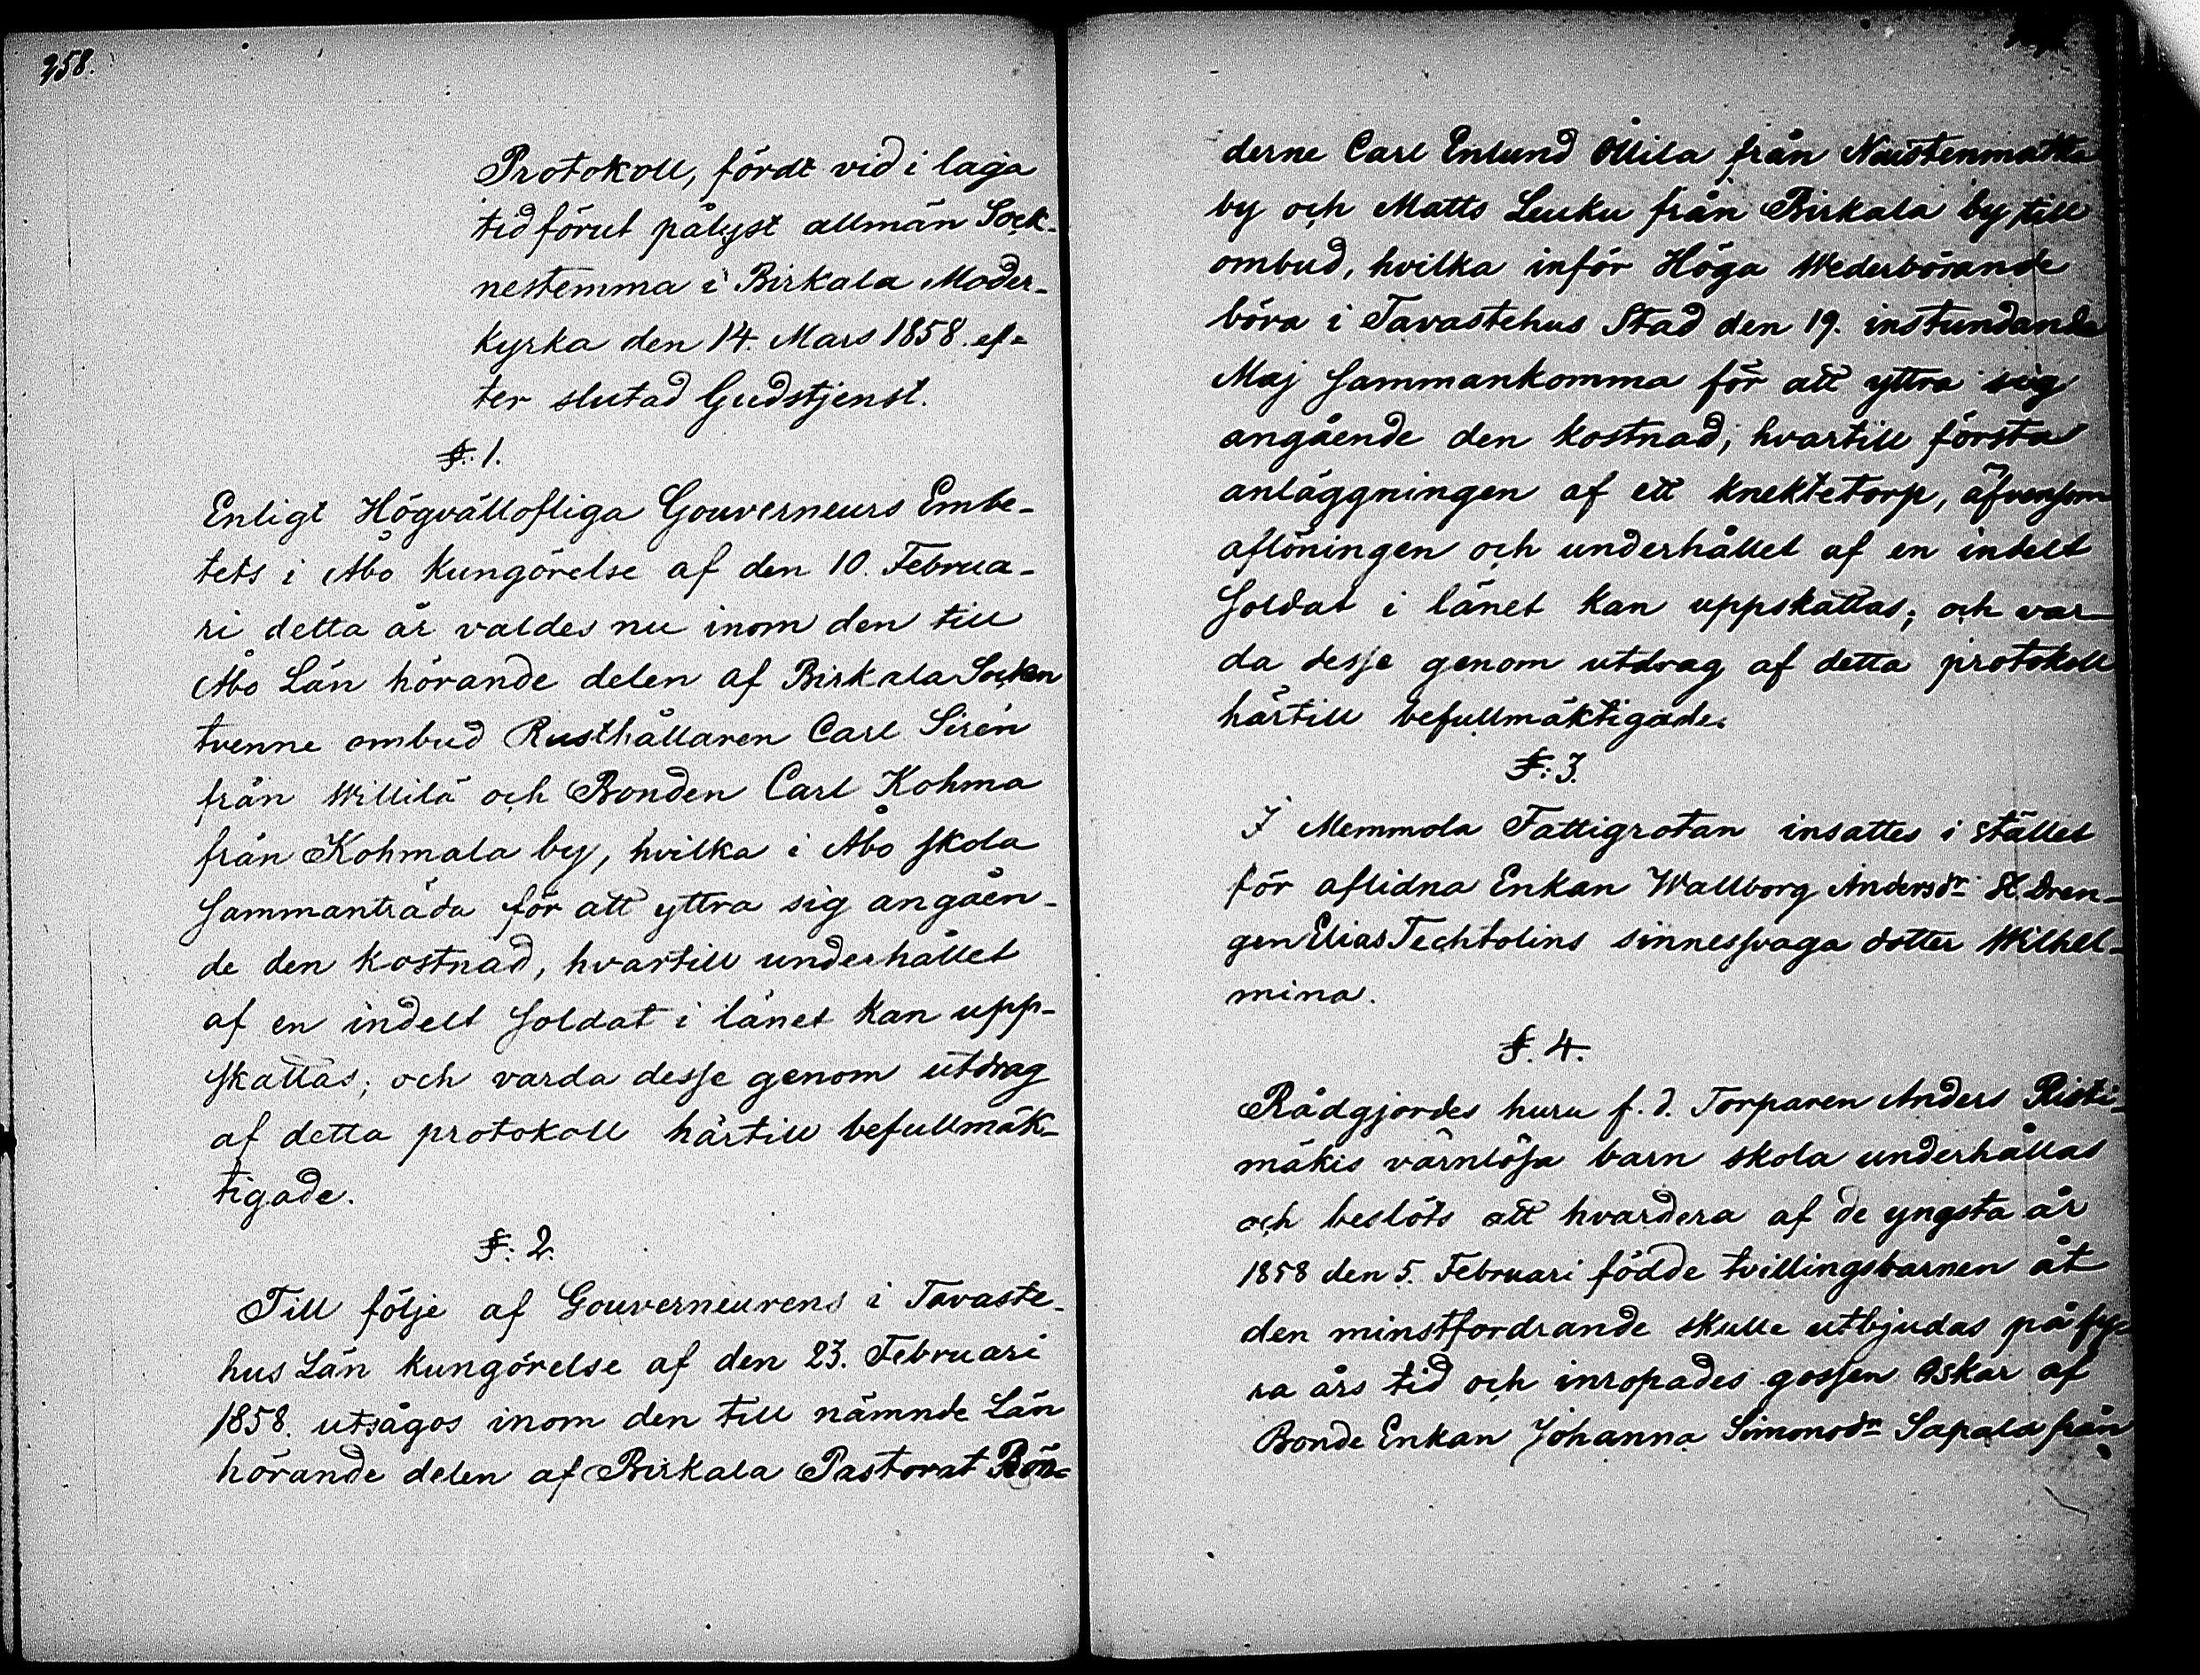 258.
Protokoll, fördt vid i laga
tid förut pålyst allmän Sock-
nestemma i Birkala Moder-
kyrka den 14. Mars 1858. ef-
ter slutad Gudstjenst.
§. 1.
Enligt Högvällofliga Gouverneurs Embe-
tets i Åbo Kungörelse af den 10. Februa-
ri detta år valdes nu inom den till
Åbo Län hörande delen af Birkala Socken
tvenne ombud Rusthållaren Carl Sirén
från Willilä och Bonden Carl Kohma
från Kohmala by, hvilka i Åbo skola
sammanträda för att yttra sig angåen-
de den kostnad, hvartill underhållet
af en indelt soldat i länet kan upp-
skattas; och varda desse genom utdrag
af detta protokoll härtill befullmäk-
tigade.
§: 2.
Till följe af Gouverneurens i Tavaste-
hus Län kungörelse af den 23. Februari
1858. utsågos inom den till nämnde Län
hörande delen af Birkala Pastorat Bön-
derne Carl Enlund Ollila från
by och Matts Leuku från Birkala by till
ombud, hvilka inför Höga Wederbörande
böra i Tavastehus Stad den 19. instundande
Maj sammankomma för att yttra sig
angående den kostnad, hvartill första
anläggningen af ett knektetorp, äfvensom
aflöningen och underhållet af en indelt
soldat i länet kan uppskattas; och var-
da desse genom utdrag af detta protokoll
härtill befullmäktigade.
§: 3.
I Memmola Fattigrotan insattes i stället
för aflidna Enkan Wallborg Andersdr St. Dren-
gen Elias Techtolins sinnessvaga dotter Wilhel-
mina.
§. 4.
Rådgjordes huru f. d. Torparen Anders Risti-
mäkis värnlösa barn skola underhållas
och beslöts att hvardera af de yngsta år
1858 den 5. Februari födde tvillingsbarnen åt
den minstfordrande skulle utbjudas på fy-
ra års tid och inropades gossen Oskar af
Bonde Enkan Johanna Simonsdr Sapala från